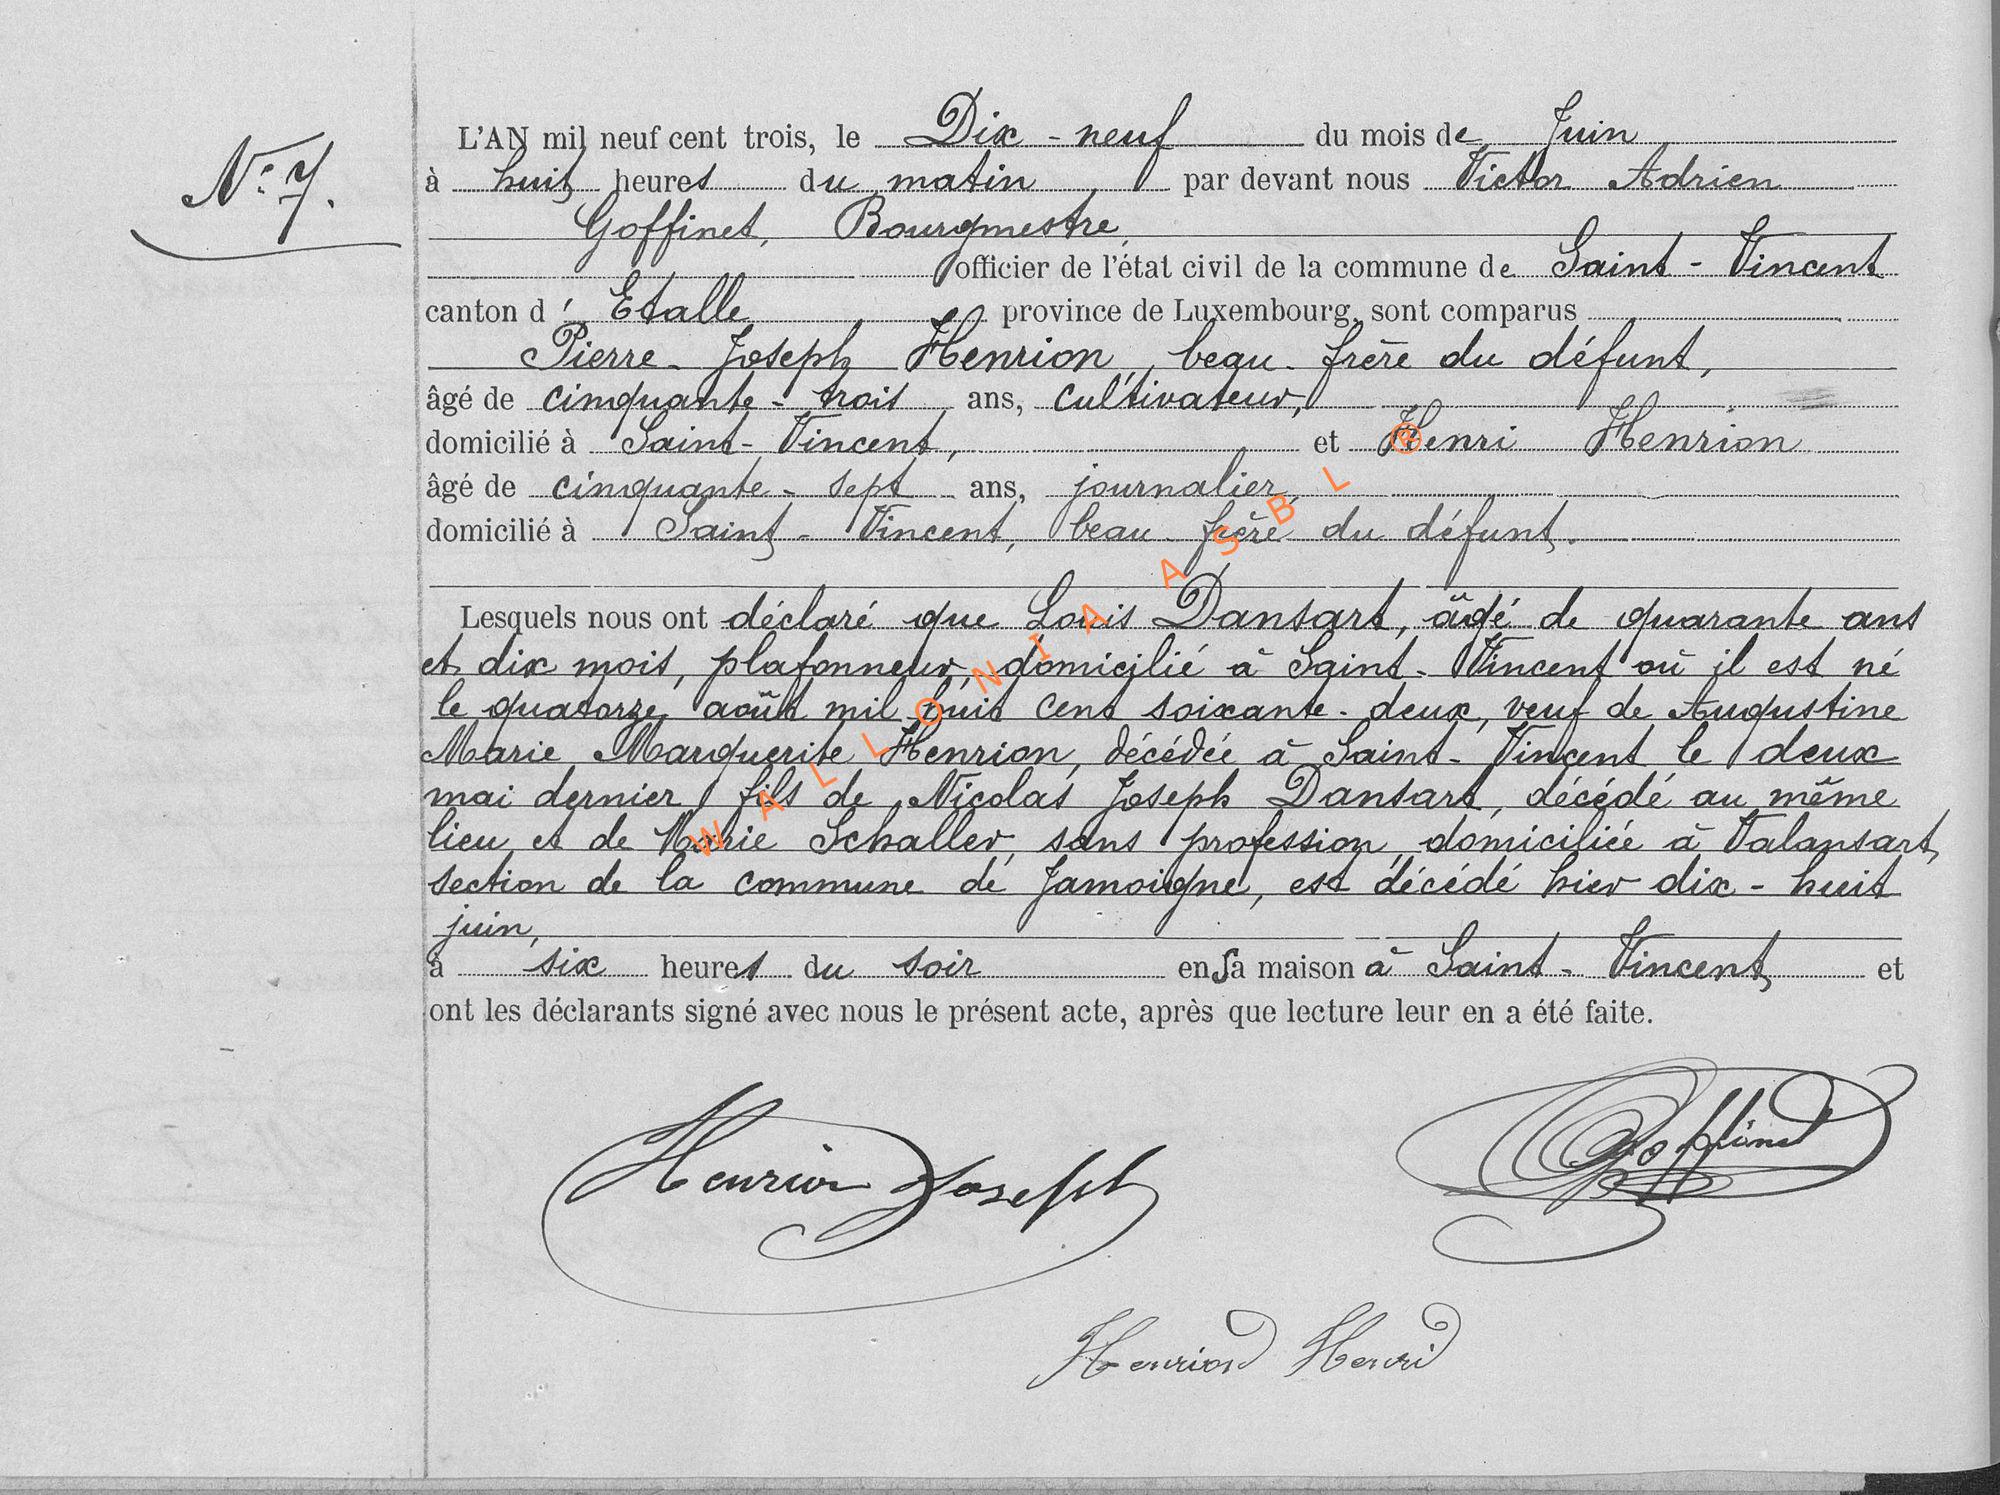 N° 7.
L'AN mil neuf cent trois, le Dix-neuf du mois de Juin
à huit heures du matin par devant nous Victor Adrien
Goffinet, Bourgmestre,
officier de l'état civil de la commune de Saint-Vincent
canton d'Etalle province de Luxembourg, sont comparus
Pierre-Joseph Henrion, beau-frère du défunt,
âgé de cinquante-trois ans, cultivateur,
domicilié à Saint-Vincent, et Henri Henrion
âgé de cinquante-sept ans, journalier,
domicilié à Saint-Vincent, beau-frère du défunt.
Lesquels nous ont déclaré que Louis Dansart, âgé de quarante ans
et dix mois, plafonneur, domicilié à Saint-Vincent où il est né
le quatorze août mil huit cent soixante-deux, veuf de Augustine
Marie Marguerite Henrion, décédée à Saint-Vincent le deux
mai dernier, fils de Nicolas Joseph Dansart, décédé au même
lieu et de Marie Schaller, sans profession, domiciliée à Valansart,
section de la commune de Jamoigne, est décédé hier dix-huit
juin,
à six heures du soir en sa maison à Saint-Vincent et
ont les déclarants signé avec nous le présent acte, après que lecture leur en a été faite.
Henrion Joseph
Goffinet
Henrion Henri
WALLONIA ASBL ®